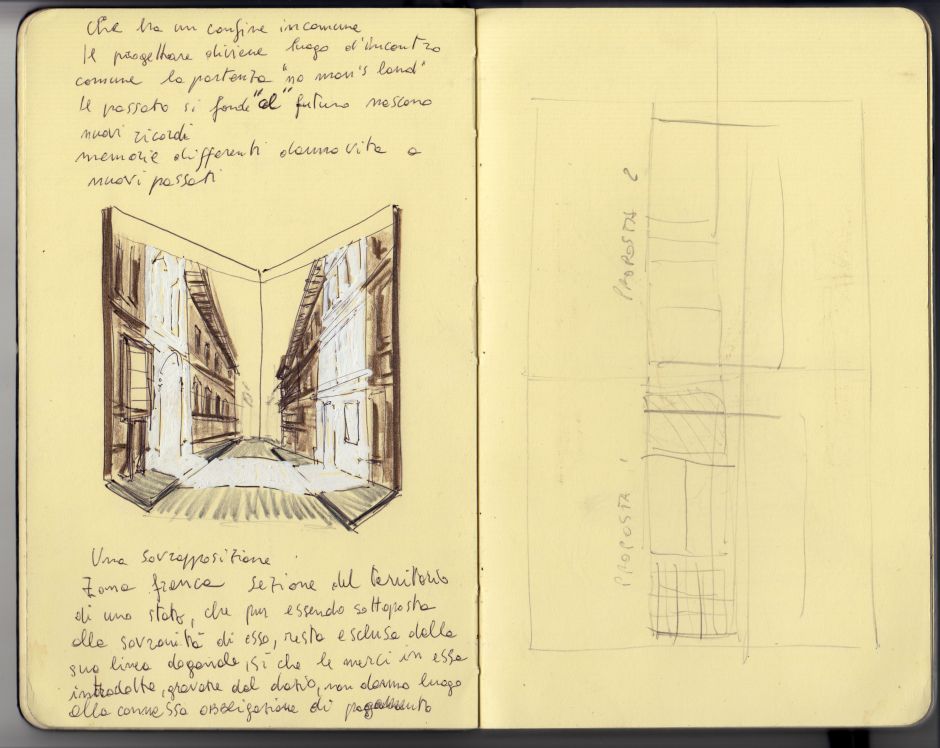 Che ha un confine in comune
Il progettare diviene luogo d'incontro
comune la partenza "no man's land"
Il passato si fonde "al" futuro nascono
nuovi ricordi
memorie differenti danno vita a
nuovi passati
Una sovrapposizione.
Zona franca sezione del territorio
di uno stato, che pur essendo sottoposta
alla sovranità di esso, resta esclusa dalla
sua linea doganale, sì che le merci in essa
introdotte, gravate dal dazio, non danno luogo
alla connessa obbligazione di pagamento
PROPOSTA 2
PROPOSTA 1